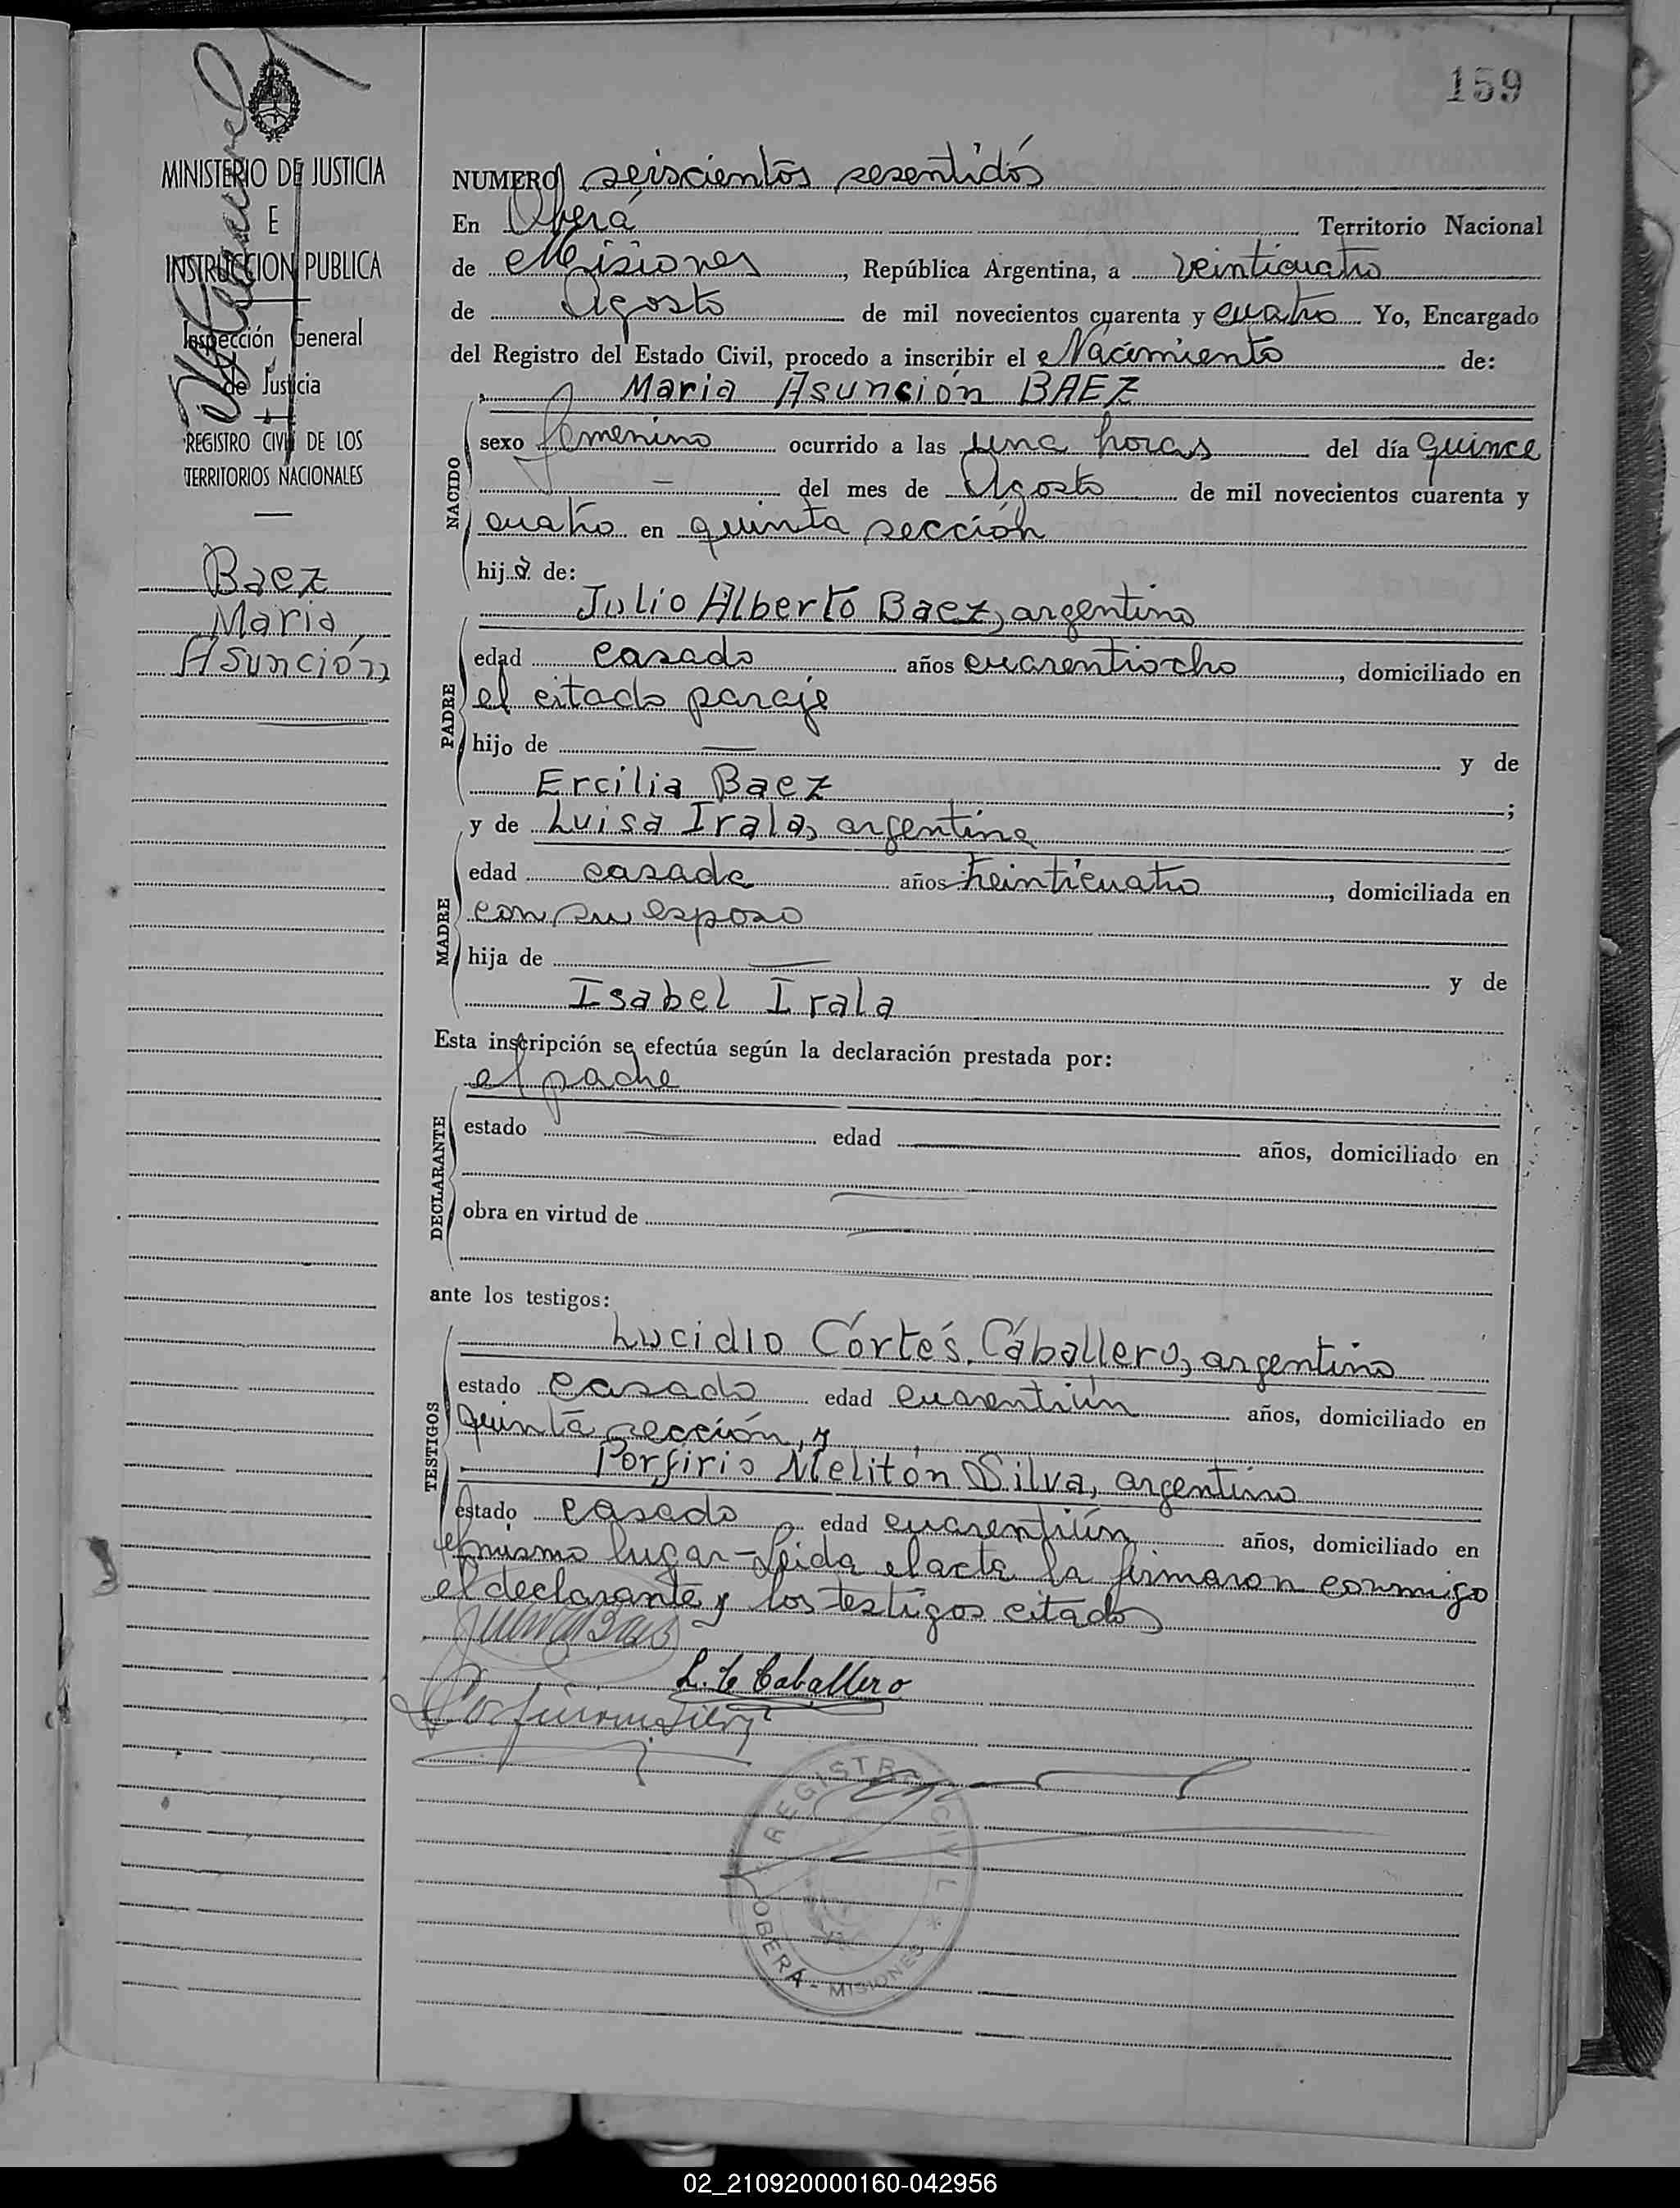 159
MINISTERIO DE JUSTICIA
E
INSTRUCCION PUBLICA
Inspección General
de Justicia
REGISTRO CIVIL DE LOS
TERRITORIOS NACIONALES
Baez
Maria
Asunción
NUMERO seiscientos sesentidós
En Oberá Territorio Nacional
de Misiones, República Argentina, a veinticuatro
de Agosto de mil novecientos cuarenta y cuatro Yo, Encargado
del Registro del Estado Civil, procedo a inscribir el Nacimiento de:
Maria Asunción BAEZ
NACIDO
sexo femenino ocurrido a las una horas del día quince
— del mes de Agosto de mil novecientos cuarenta y
cuatro en quinta sección
hija de:
Julio Alberto Baez, argentino
PADRE
edad casado años cuarentiocho, domiciliado en
el citado paraje
hijo de — y de
Ercilia Baez ;
y de Luisa Irala, argentina
MADRE
edad casada años treinticuatro, domiciliada en
con su esposo
hija de — y de
Isabel Irala
Esta inscripción se efectúa según la declaración prestada por:
el padre
DECLARANTE
estado — edad — años, domiciliado en
obra en virtud de
ante los testigos:
Lucidio Córtes Cáballero, argentino
TESTIGOS
estado casado edad cuarentiún años, domiciliado en
quinta sección, y
Porfirio Melitón Silva, argentino
estado casado edad cuarentiún años, domiciliado en
el mismo lugar-Leida el acta la firmaron conmigo
el declarante y los testigos citados
L. C. Caballero
REGISTRO CIVIL
OBERÁ - MISIONES
02_210920000160-042956